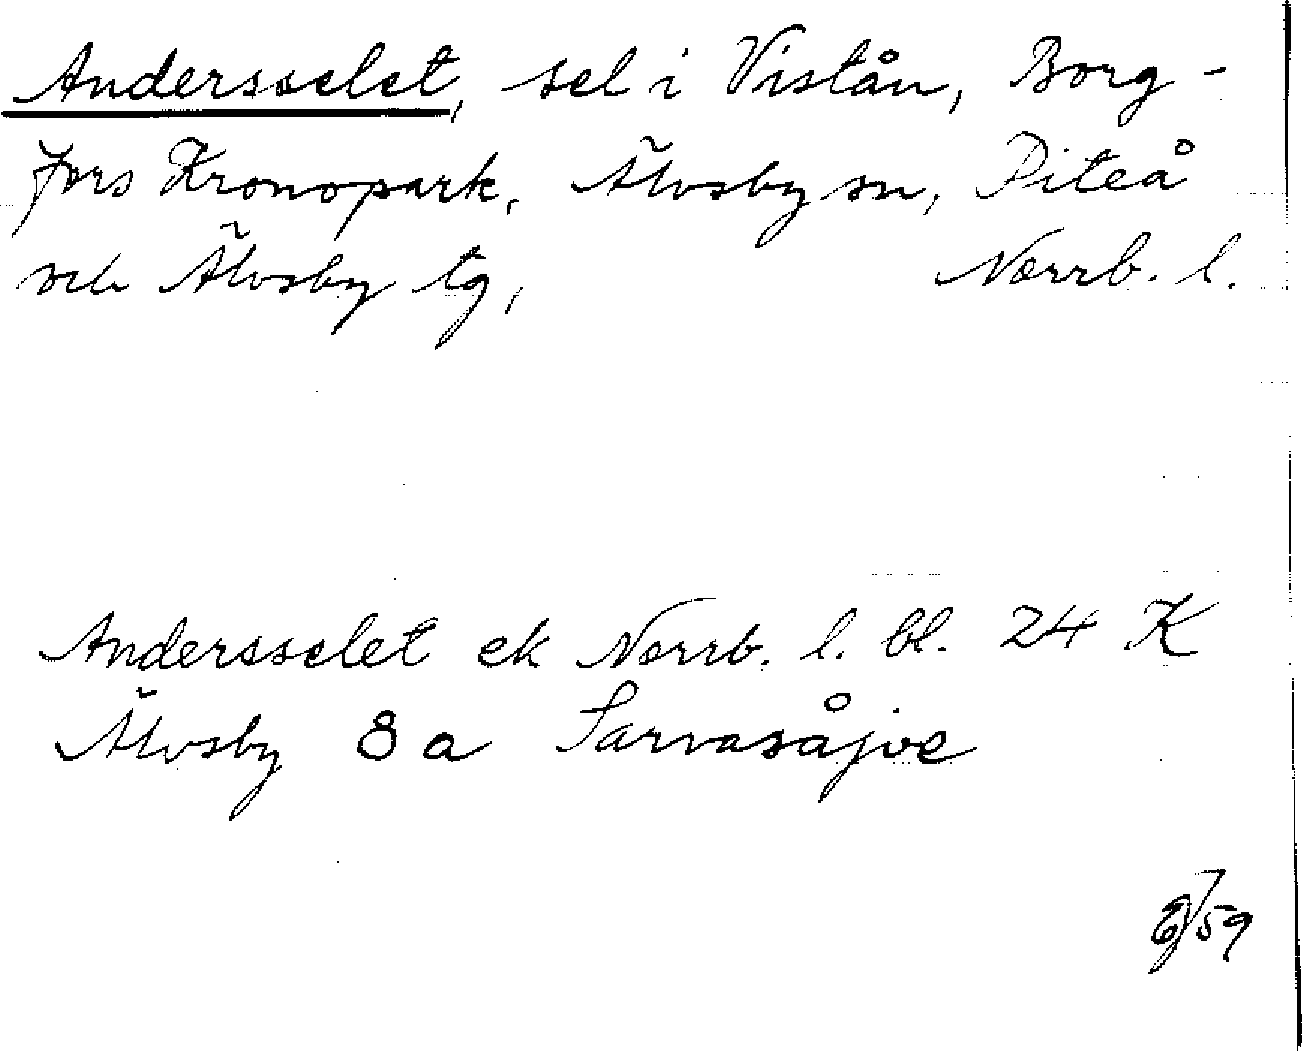 Andersselet, sel i Vistån, Borg-
fors Kronopark, Älvsby sn, Piteå
och Älvsby tg, Norrb. l.
Andersselet ek Norrb. l. bl. 24 K
Älvsby 8a Sarvasåjve
59